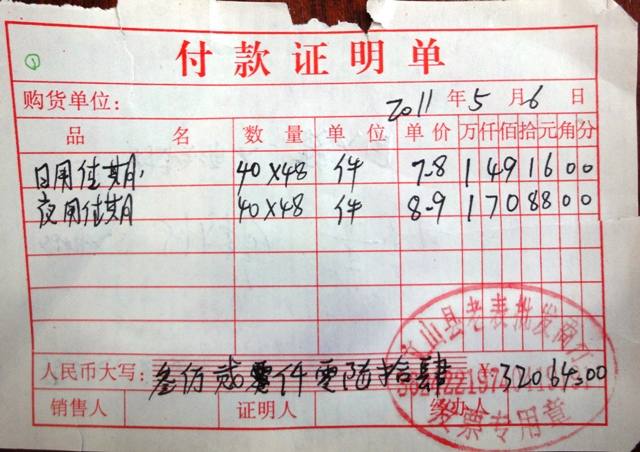 ①
付款证明单
购货单位：
2011 年 5 月 6 日
品 名 数 量 单 位 单 价 万 仟 佰 拾 元 角 分
日用佳期 40×48 件 7-8 1 4 9 7 6 0 0
夜用佳期 40×48 件 8-9 1 7 0 8 8 0 0
山县老表批发商行
人民币大写： 叁 仟 零 陆 拾 肆 ¥:32064.00
销售人 证明人 经办人
发票专用章